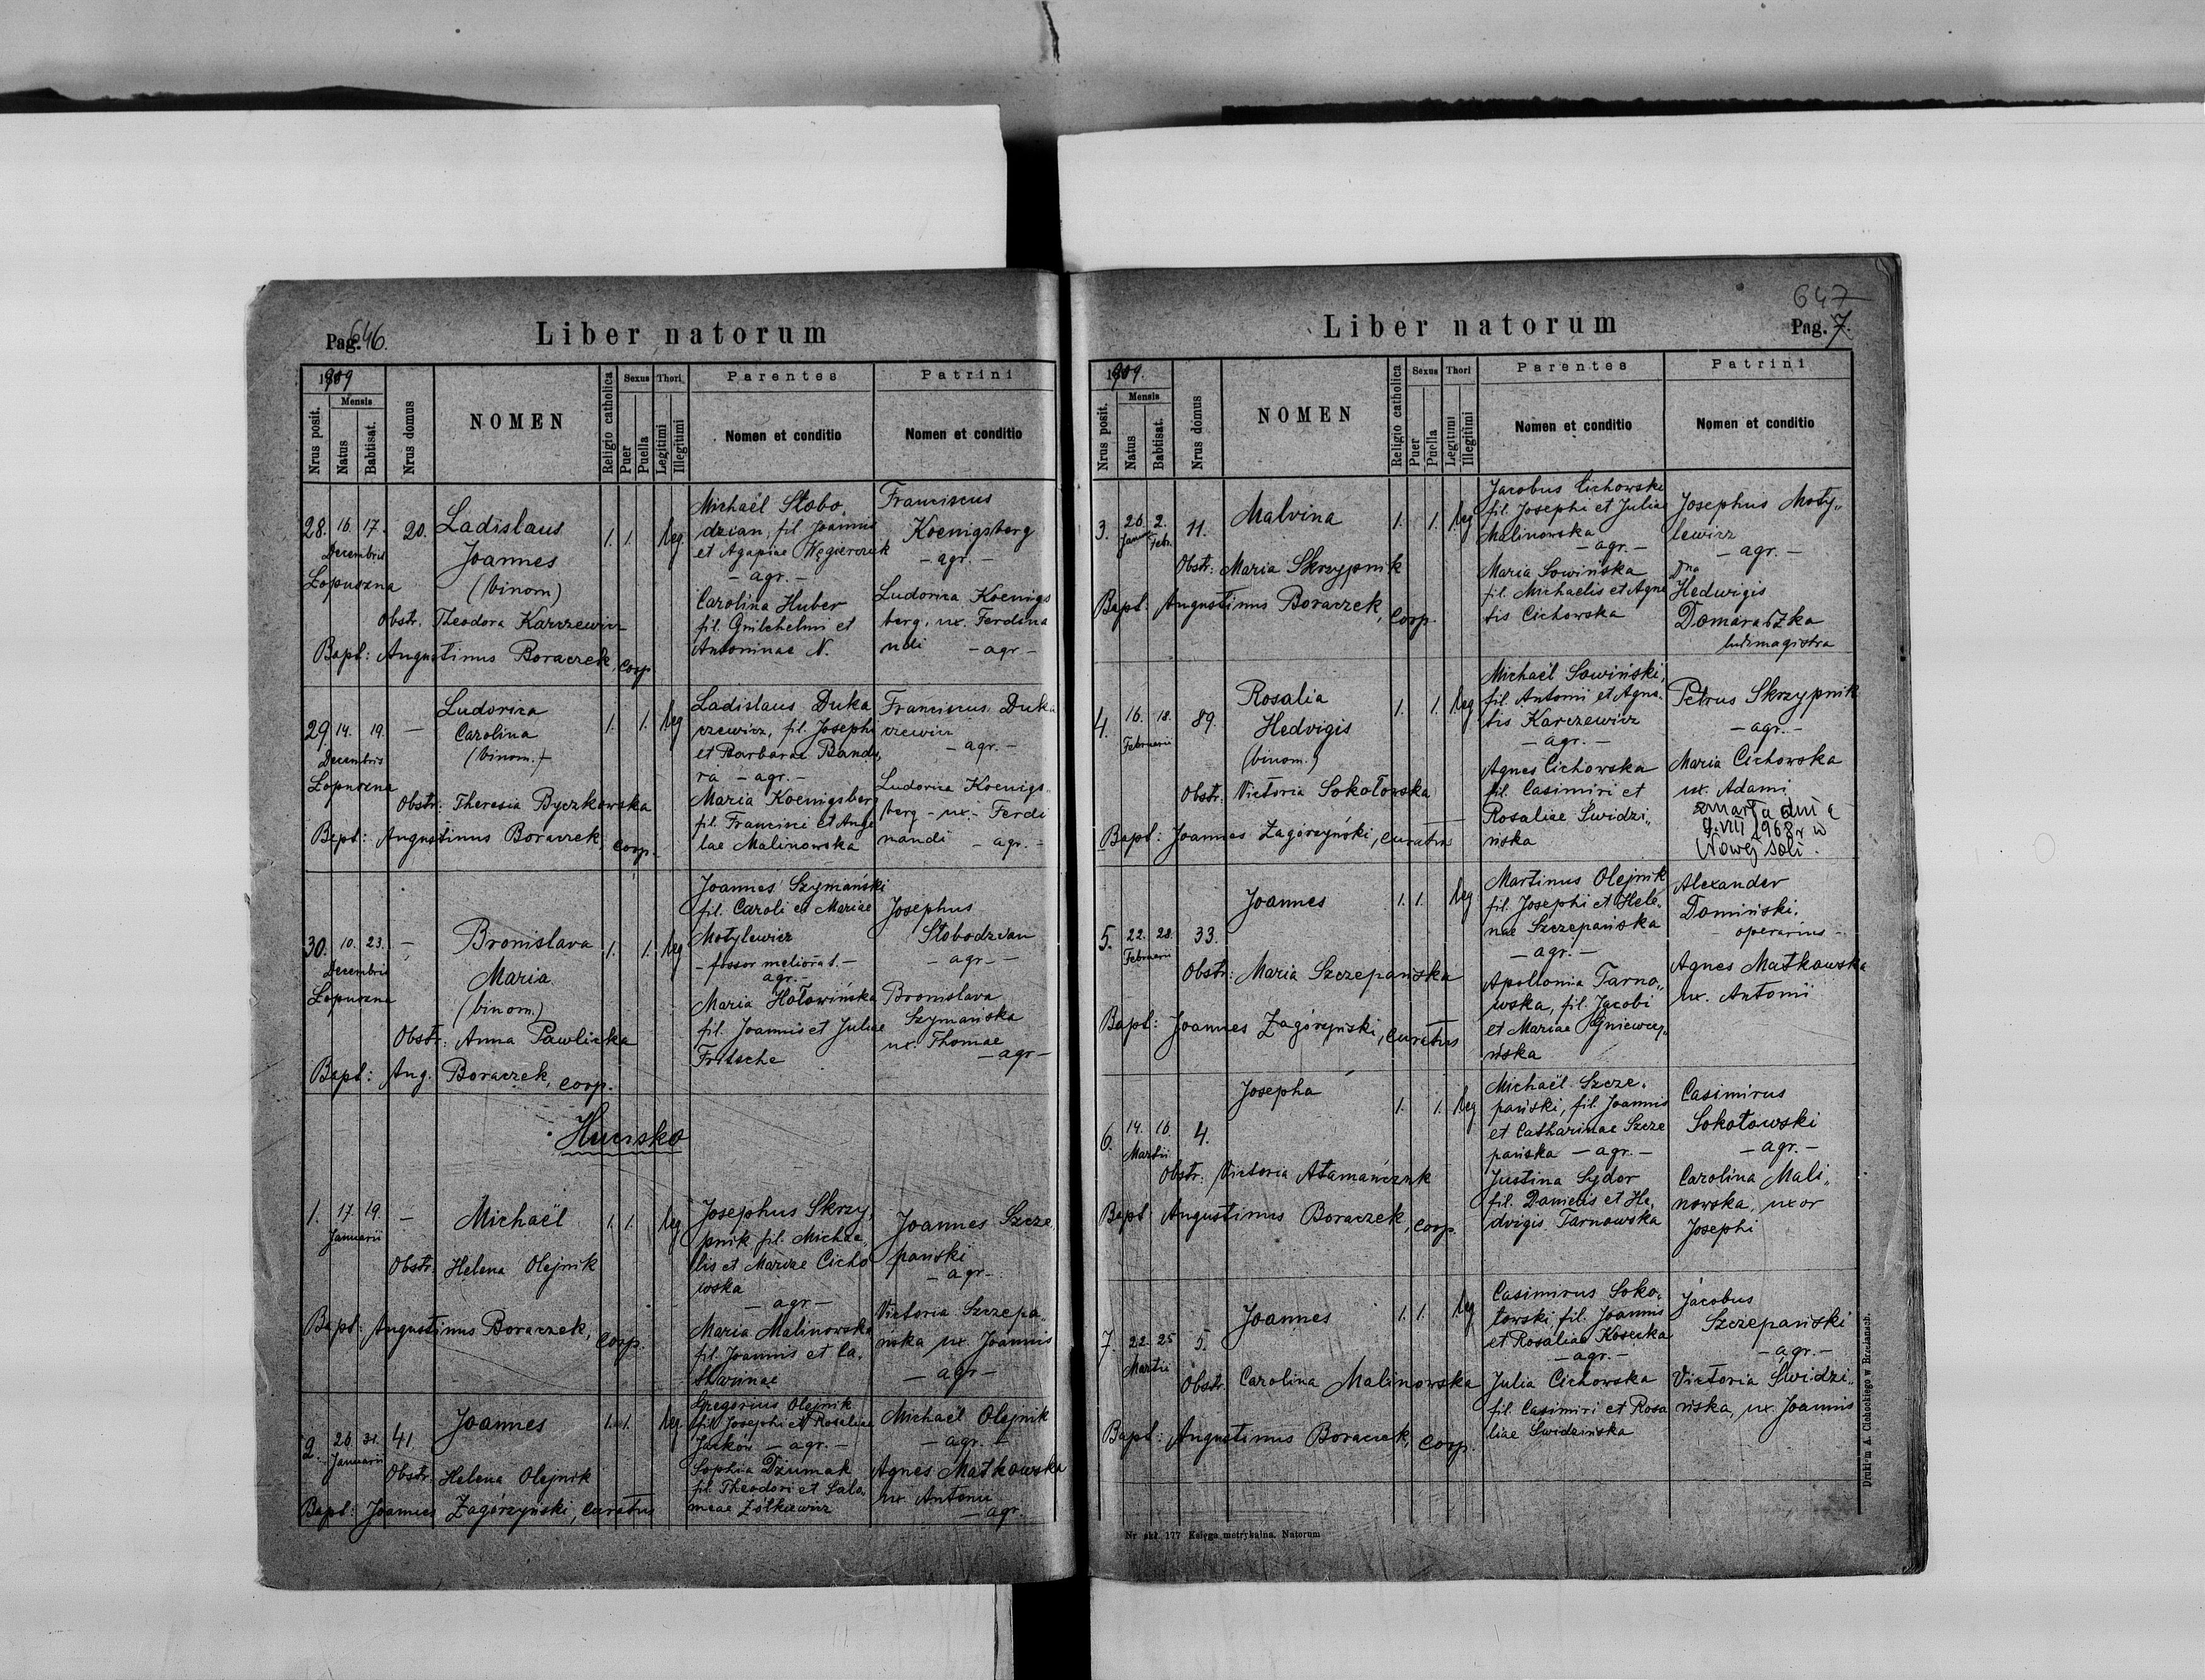 Pag. 646.
Liber natorum
1909
Nrus posit.
Mensis
Natus
Babtisat.
Nrus domus
NOMEN
Religio catholica
Sexus
Puer
Puella
Thori
Legitimi
Illegitimi
Parentes
Nomen et conditio
Patrini
Nomen et conditio
28. 16. 17. 20. Ladislaus 1. 1. leg.
Decembris
Joannes
Łopuszna
(binom)
Obstr. Theodora Karczewicz
Bapt: Augustinus Boraczek, coop.
Michaël Słobo„
dzian, fil. Joannis
et Agapiae Węgierczuk
- agr. -
Carolina Huber
fil. Guilehelmi et
Antoninae N.
Franciscus
Koenigsberg
- agr. -
Ludovica Koenigs
berg, ux. Ferdina
ndi - agr -
29. 14. 19. — Ludovica 1. 1. leg
Decembris
Carolina
Łopuszna
(binom.)
Obstr: Theresia Byczkowska
Bapt: Augustinus Boraczek, coop.
Ladislaus Duka
czewicz, fil. Josephi
et Barbarae Bandu„
ra - agr. -
Maria Koenigsberg
fil. Francisci et Ange
lae Malinowska
Franciscus Duka
czewicz
- agr. -
Ludovica Koenigs„
berg - ux. - Ferdi
nandi - agr. -
30. 10. 23. — Bronislava 1. 1. leg
Decembris
Maria
Łopuszna
(binom.)
Obstr: Anna Pawlicka
Bapt: Aug. Boraczek, coop.
Joannes Szymański
fil. Caroli et Mariae
Motylewicz
- fossor meliorat. -
agr. -
Maria Hołowińska
fil. Joannis et Juliae
Fritsche
Josephus
Słobodzian
- agr -
Bronislava
Szymańska
ux. Thomae
- agr -
Hucisko
1. 17. 19. — Michaël 1. 1. leg
Januarii
Obstr. Helena Olejnik
Bapt: Augustinus Boraczek, coop.
Josephus Skrzy„
pnik fil. Michae„
lis et Mariae Cicho
wska
- agr -
Maria Malinowska
fil. Joannis et Ca„
tharinae
Joannes Szcze„
pański
- agr -
Victoria Szczepa„
ńska ux Joannis
- agr -
2. 26 31. 41. Joannes 1. 1. leg.
Januarii
Obstr. Helena Olejnik
Bapt: Joannes Zagórzyński, curatus
Gregorius Olejnik
fil. Josephi et Rosaliae
Jaśków - agr. -
Sophia Dziumak
fil. Theodori et Salo„
meae Żółkiewicz
Michaël Olejnik
- agr. -
Agnes Małkowska
ux. Antonii
- agr.
647
Liber natorum
Pag. 7.
1909.
Nrus posit.
Mensis
Natus
Babtisat.
Nrus domus
NOMEN
Religio catholica
Sexus
Puer
Puella
Thori
Legitimi
Illegitimi
Parentes
Nomen et conditio
Patrini
Nomen et conditio
3. 26. 2. 11. Malvina 1. 1. leg
Januar. Febr.
Obstr: Maria Skrzypnik
Bapt: Augustinus Boraczek, coop.
Jacobus Cichowski
fil. Josephi et Juliae
Malinowska
- agr. -
Maria Sowińska
fil. Michaelis et Agne
tis Cichowska
Josephus Moty„
lewicz
- agr. -
Dna
Hedwigis
Domaraszka
ludimagistra
4. 16. 18. 89. Rosalia 1. 1. leg
Februarii
Hedvigis
(binom.)
Obstr: Victoria Sokołowska
Bapt: Joannes Zagórzyński, curatus
Michaël Sowiński,
fil. Antonii et Agne„
tis Karczewicz
- agr. -
Agnes Cichowska
fil. Casimiri et
Rosaliae Świdzi„
ńska
Petrus Skrzypnik
- agr. -
Maria Cichowska
ux. Adami
zmarła dnia
9.VIII 1968 r w
Nowej Soli.
5. 22. 28. 33. Joannes 1. 1. leg
Februarii
Obstr: Maria Szczepańska
Bapt: Joannes Zagórzyński, curatus
Martinus Olejnik
fil. Josephi et Hele„
nae Szczepańska
- agr. -
Apollonia Tarno„
wska, fil. Jacobi
et Mariae Gniewczy„
ńska
Alexander
Domiński,
- operarius -
Agnes Małkowska
ux. Antonii
6. 14. 16. 4. Josepha 1. 1. leg
Martii
Obstr: Victoria Atamańczuk
Bapt: Augustinus Boraczek, coop.
Michaël Szcze„
pański, fil. Joannis
et Catharinae Szcze
pańska - agr. -
Justina Sydor
fil. Danielis et He„
dvigis Tarnowska
Casimirus
Sokołowski
- agr. -
Carolina Mali„
nowska, uxor
Josephi
7. 22. 25 5. Joannes 1. 1. leg
Martii
Obstr. Carolina Malinowska
Bapt: Augustinus Boraczek, coop.
Casimirus Soko„
łowski, fil. Joannis
et Rosaliae Kosecka
- agr. -
Julia Cichowska
fil. Casimiri et Rosa
liae Świdzińska
Jacobus
Szczepański
- agr. -
Victoria Świdzi„
ńska, ux. Joannis
Nr. skł. 177 Księga metrykalna. Natorum
Drukiem A. Cichockiego w Brzeżanach.